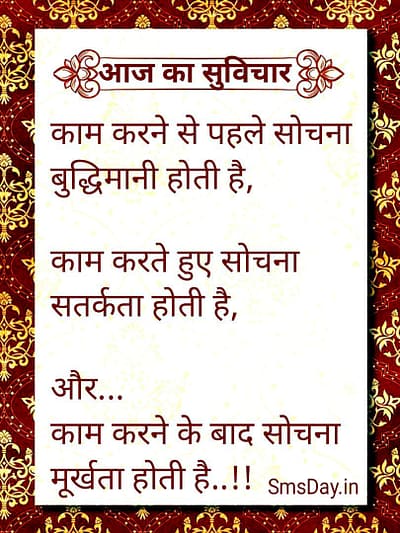 आज का सुविचार
काम करने से पहले सोचना
बुद्धिमानी होती है,
काम करते हुए सोचना
सतर्कता होती है,
और...
काम करने के बाद सोचना
मूर्खता होती है..!!
SmsDay.in